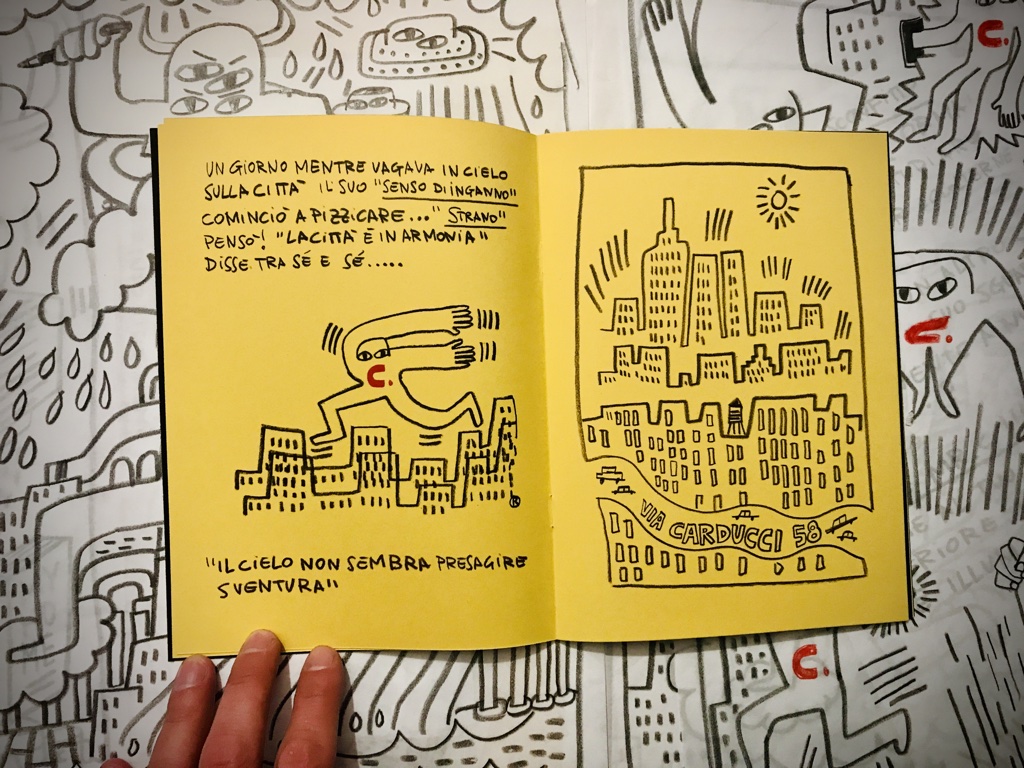 UN GIORNO MENTRE VAGAVA IN CIELO
SULLA CITTA' IL SUO "SENSO DI INGANNO"
COMINCIÒ A PIZZICARE..." STRANO"
PENSO'! "LA CITTÀ È IN ARMONIA"
DISSE TRA SÉ E SÉ.....
C.
"IL CIELO NON SEMBRA PRESAGIRE
SVENTURA"
VIA CARDUCCI 58
C.
C.